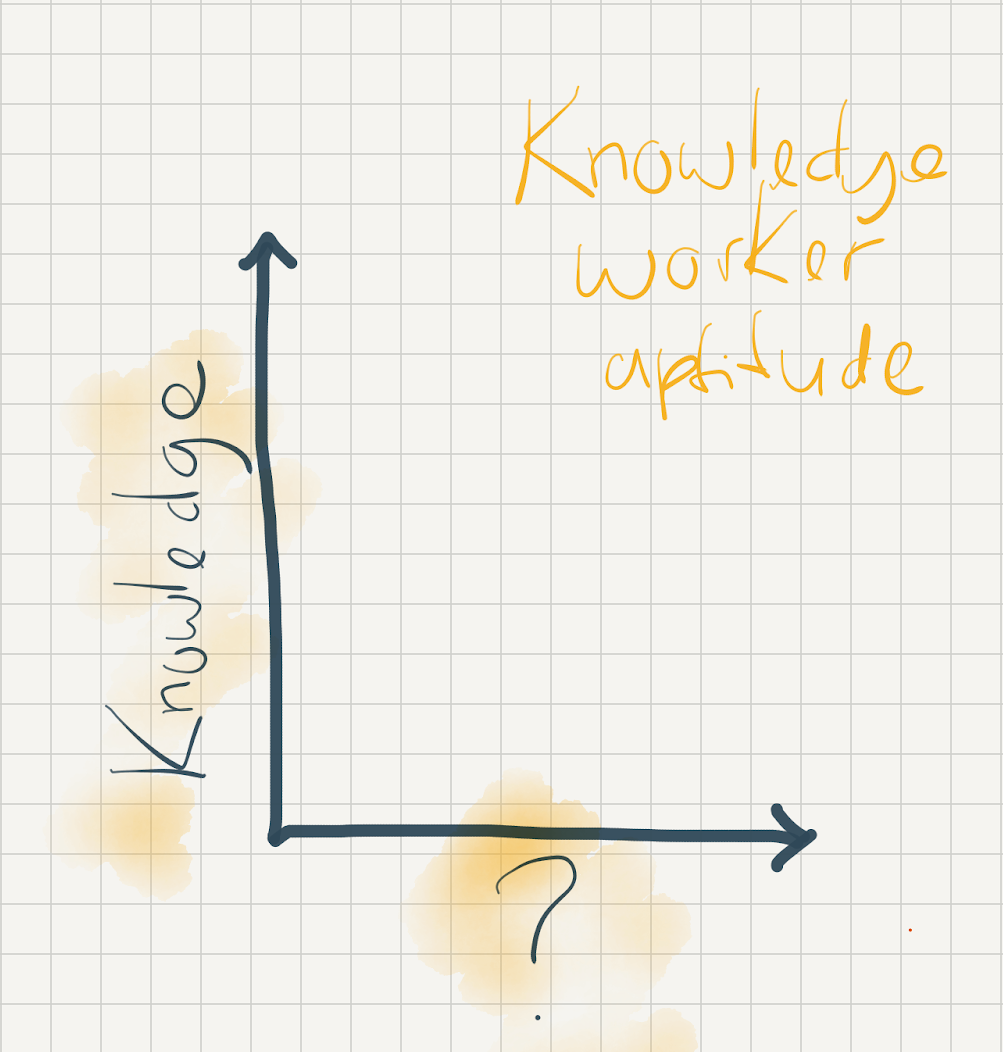 Knowledge
worker
aptitude
Knowledge
?